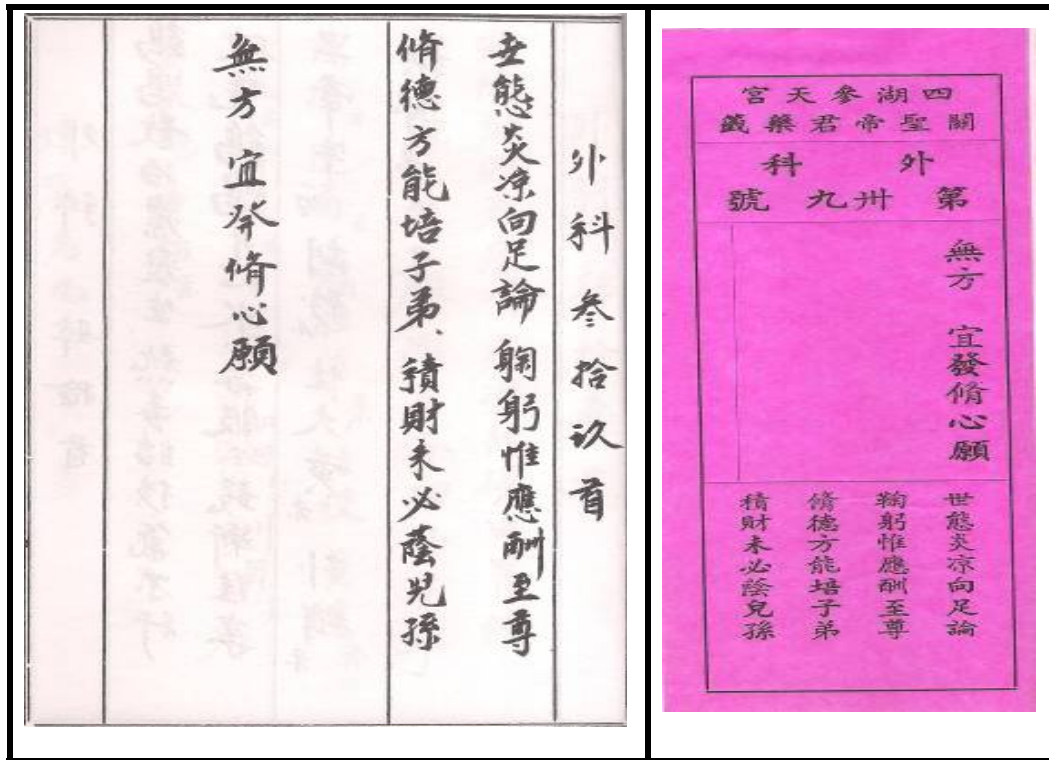 外科参拾玖首
世態炎凉向足論 躹躬惟應酬至尊
脩德方能培子弟、積財未必蔭兒孫
無方 宜發脩心願
四湖參天宮
關聖帝君藥籤
外科
第卅九號
無方 宜發脩心願
世態炎凉向足論
鞠躬惟應酬至尊
脩德方能培子弟
積財未必蔭兒孫